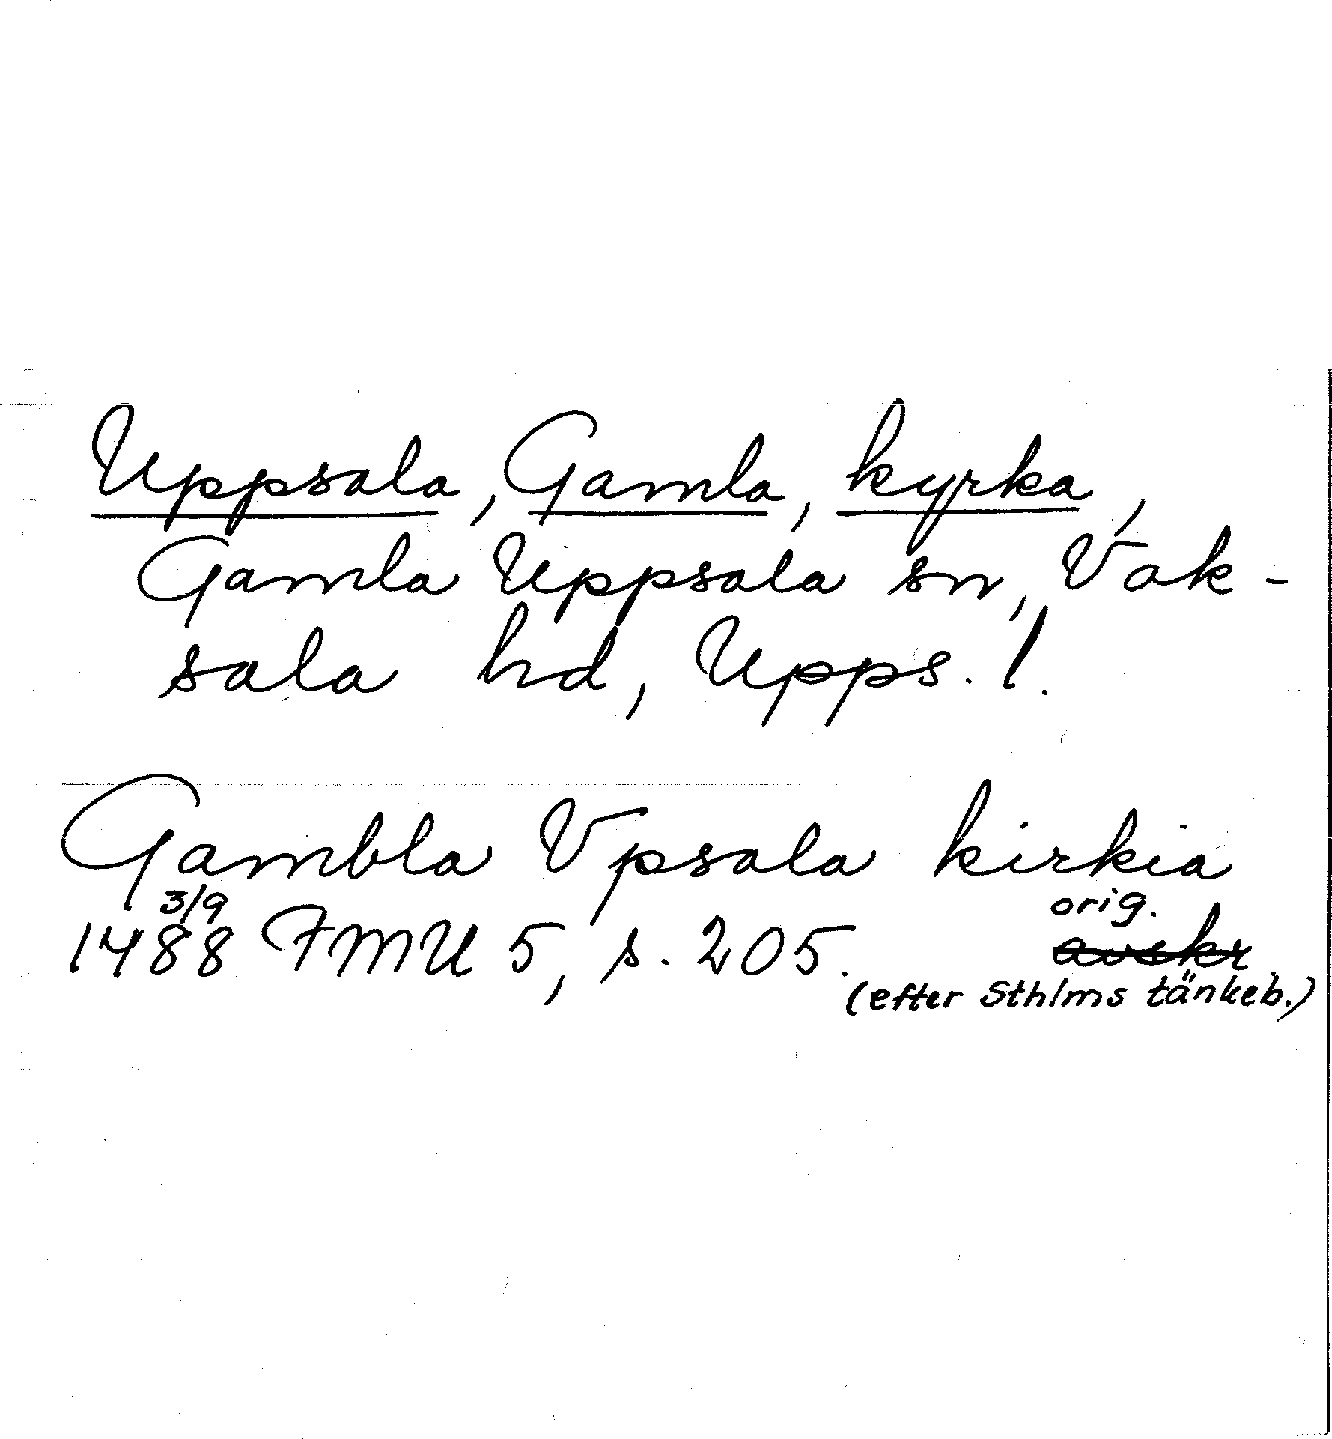 Uppsala, Gamla, kyrka,
Gamla Uppsala sn, Vak-
sala hd, Upps. l.
Gambla Vpsala kirkia
3/9 orig.
1488 FMU 5, s. 205. avskr
(efter Sthlms tänkeb.)